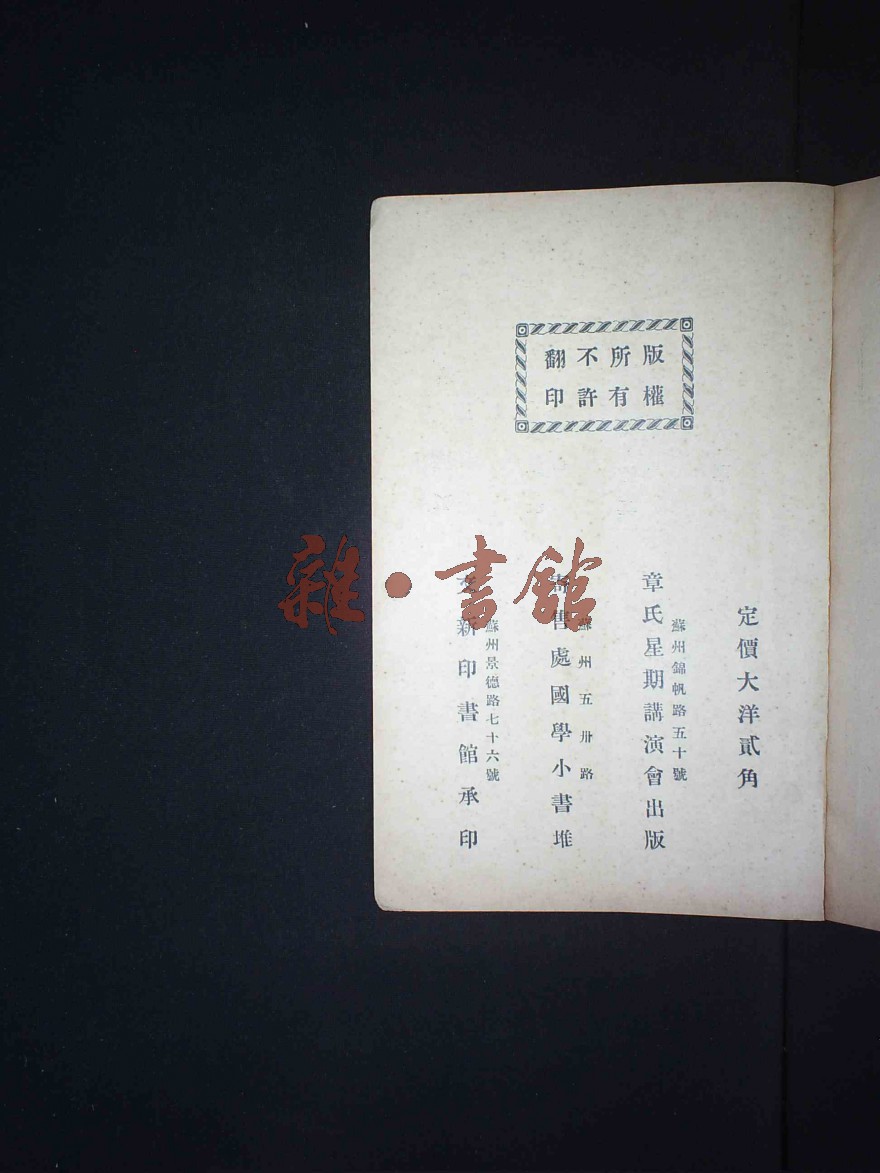 版權
所有
不許
翻印
定價大洋貳角
蘇州錦帆路五十號
章氏星期講演會出版
蘇州五卅路
寄書處國學小書堆
蘇州景德路七十六號
文新印書館承印
雜·書館